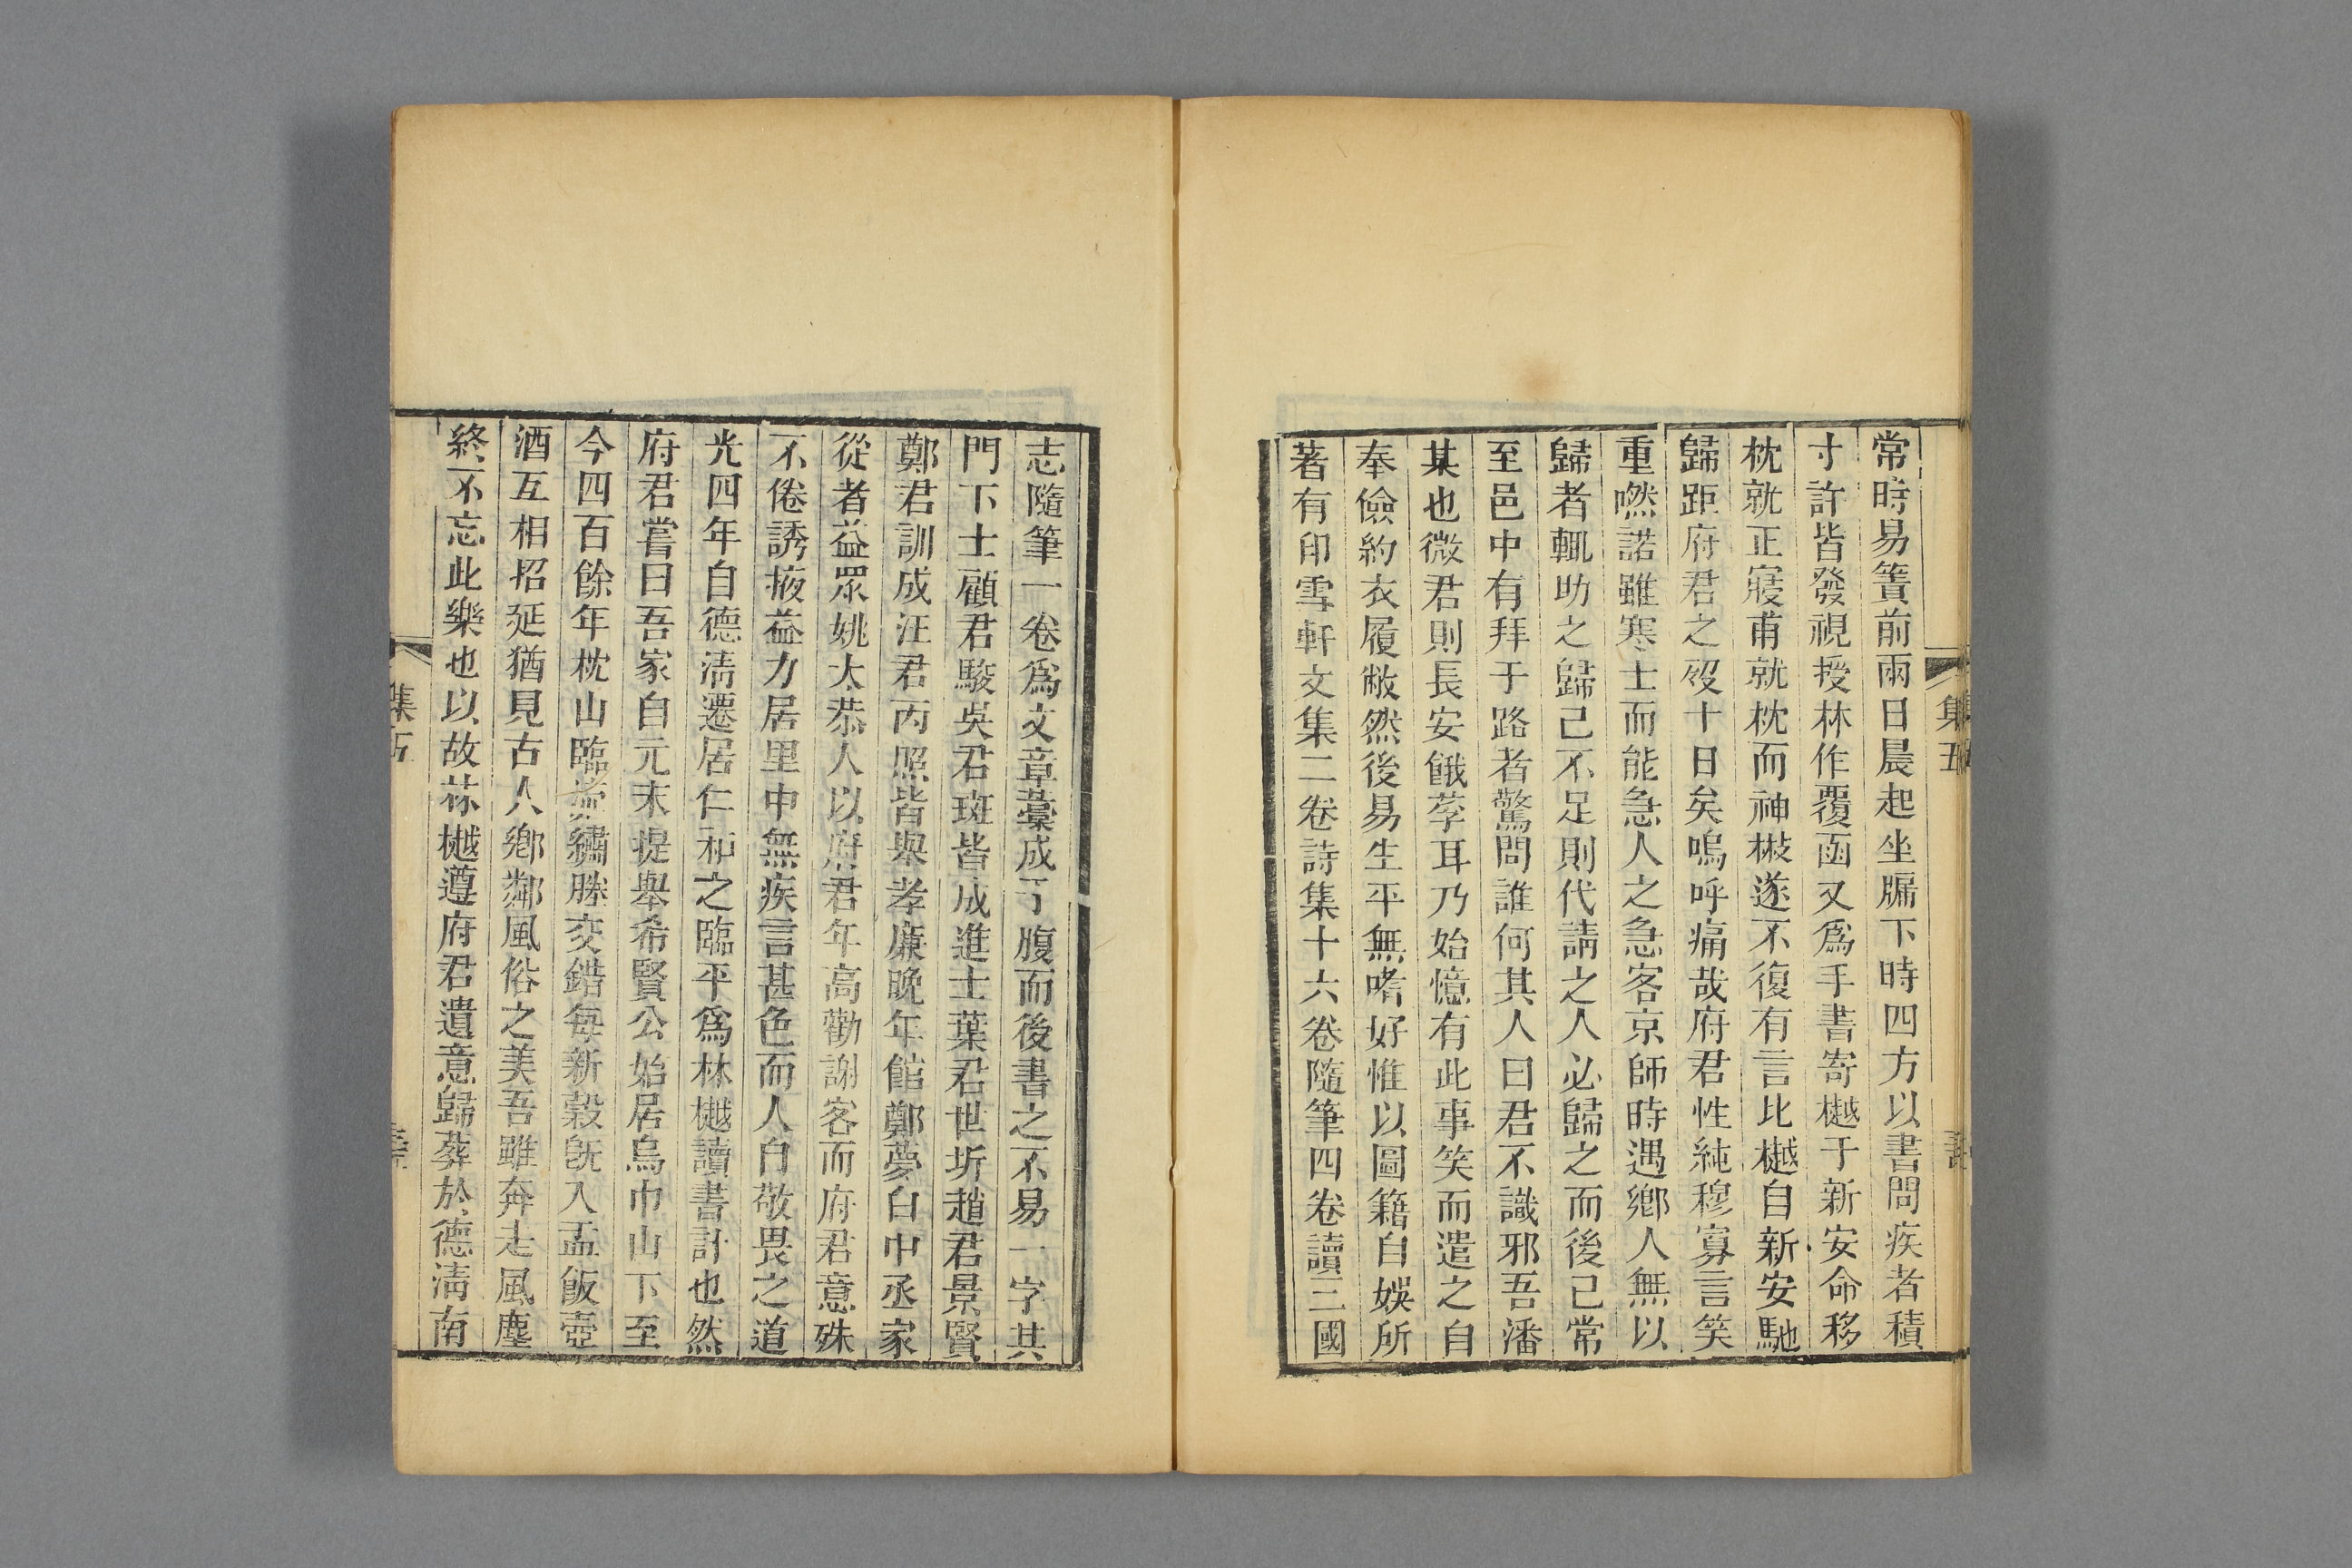 常時易簀前兩日晨起坐牖下時四方以書問疾者積
寸許皆發視授林作覆函又爲手書寄樾于新安命移
枕就正寢甫就枕而神㪚遂不復有言比樾自新安馳
歸距府君之歿十日矣嗚呼痛哉府君性純穆寡言笑
重嘫諾雖寒士而能急人之急客京師時遇鄉人無以
歸者輒助之歸己不足則代請之人必歸之而後已常
至邑中有拜于路者驚問誰何其人曰君不識邪吾潘
某也微君則長安餓莩耳乃始憶有此事笑而遣之自
奉儉約衣履敝然後易生平無嗜好惟以圖籍自娛所
著有印雪軒文集二卷詩集十六卷隨筆四卷讀三國
集五
志隨筆一卷爲文章藁成于腹而後書之不易一字其
門下士顧君駿吳君斑皆成進士葉君世圻趙君景賢
鄭君訓成汪君丙照皆舉孝廉晚年館鄭夢白中丞家
從者益眾姚太恭人以府君年高勸謝客而府君意殊
不倦誘掖益力居里中無疾言甚色而人自敬畏之道
光四年自德淸遷居仁和之臨平爲林樾讀書計也然
府君嘗曰吾家自元末提舉希賢公始居烏巾山下至
今四百餘年枕山臨㳌繡塍交錯每新穀旣入盂飯壺
酒互相招延猶見古人鄉鄰風俗之美吾雖奔走風塵
終不忘此樂也以故林樾遵府君遺意歸葬於德淸南
集五